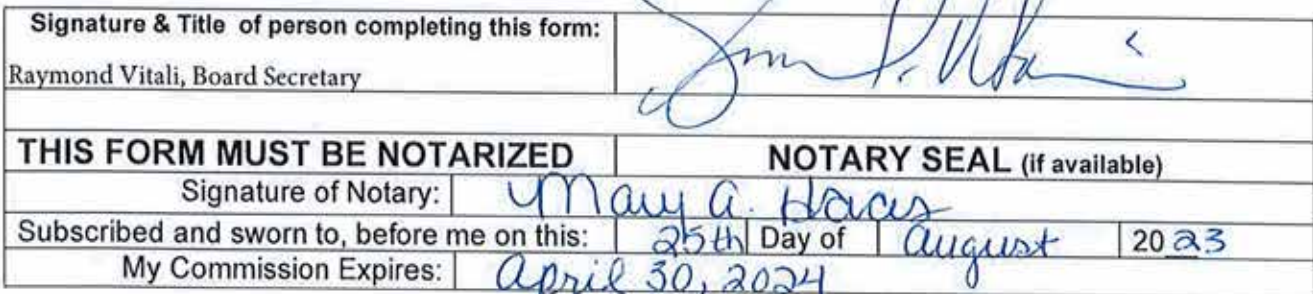 Signature & Title of person completing this form:
Raymond Vitali, Board Secretary
THIS FORM MUST BE NOTARIZED NOTARY SEAL (if available)
Signature of Notary: Mary A. Haas
Subscribed and sworn to, before me on this: 25th Day of August 2023
My Commission Expires: April 30, 2024